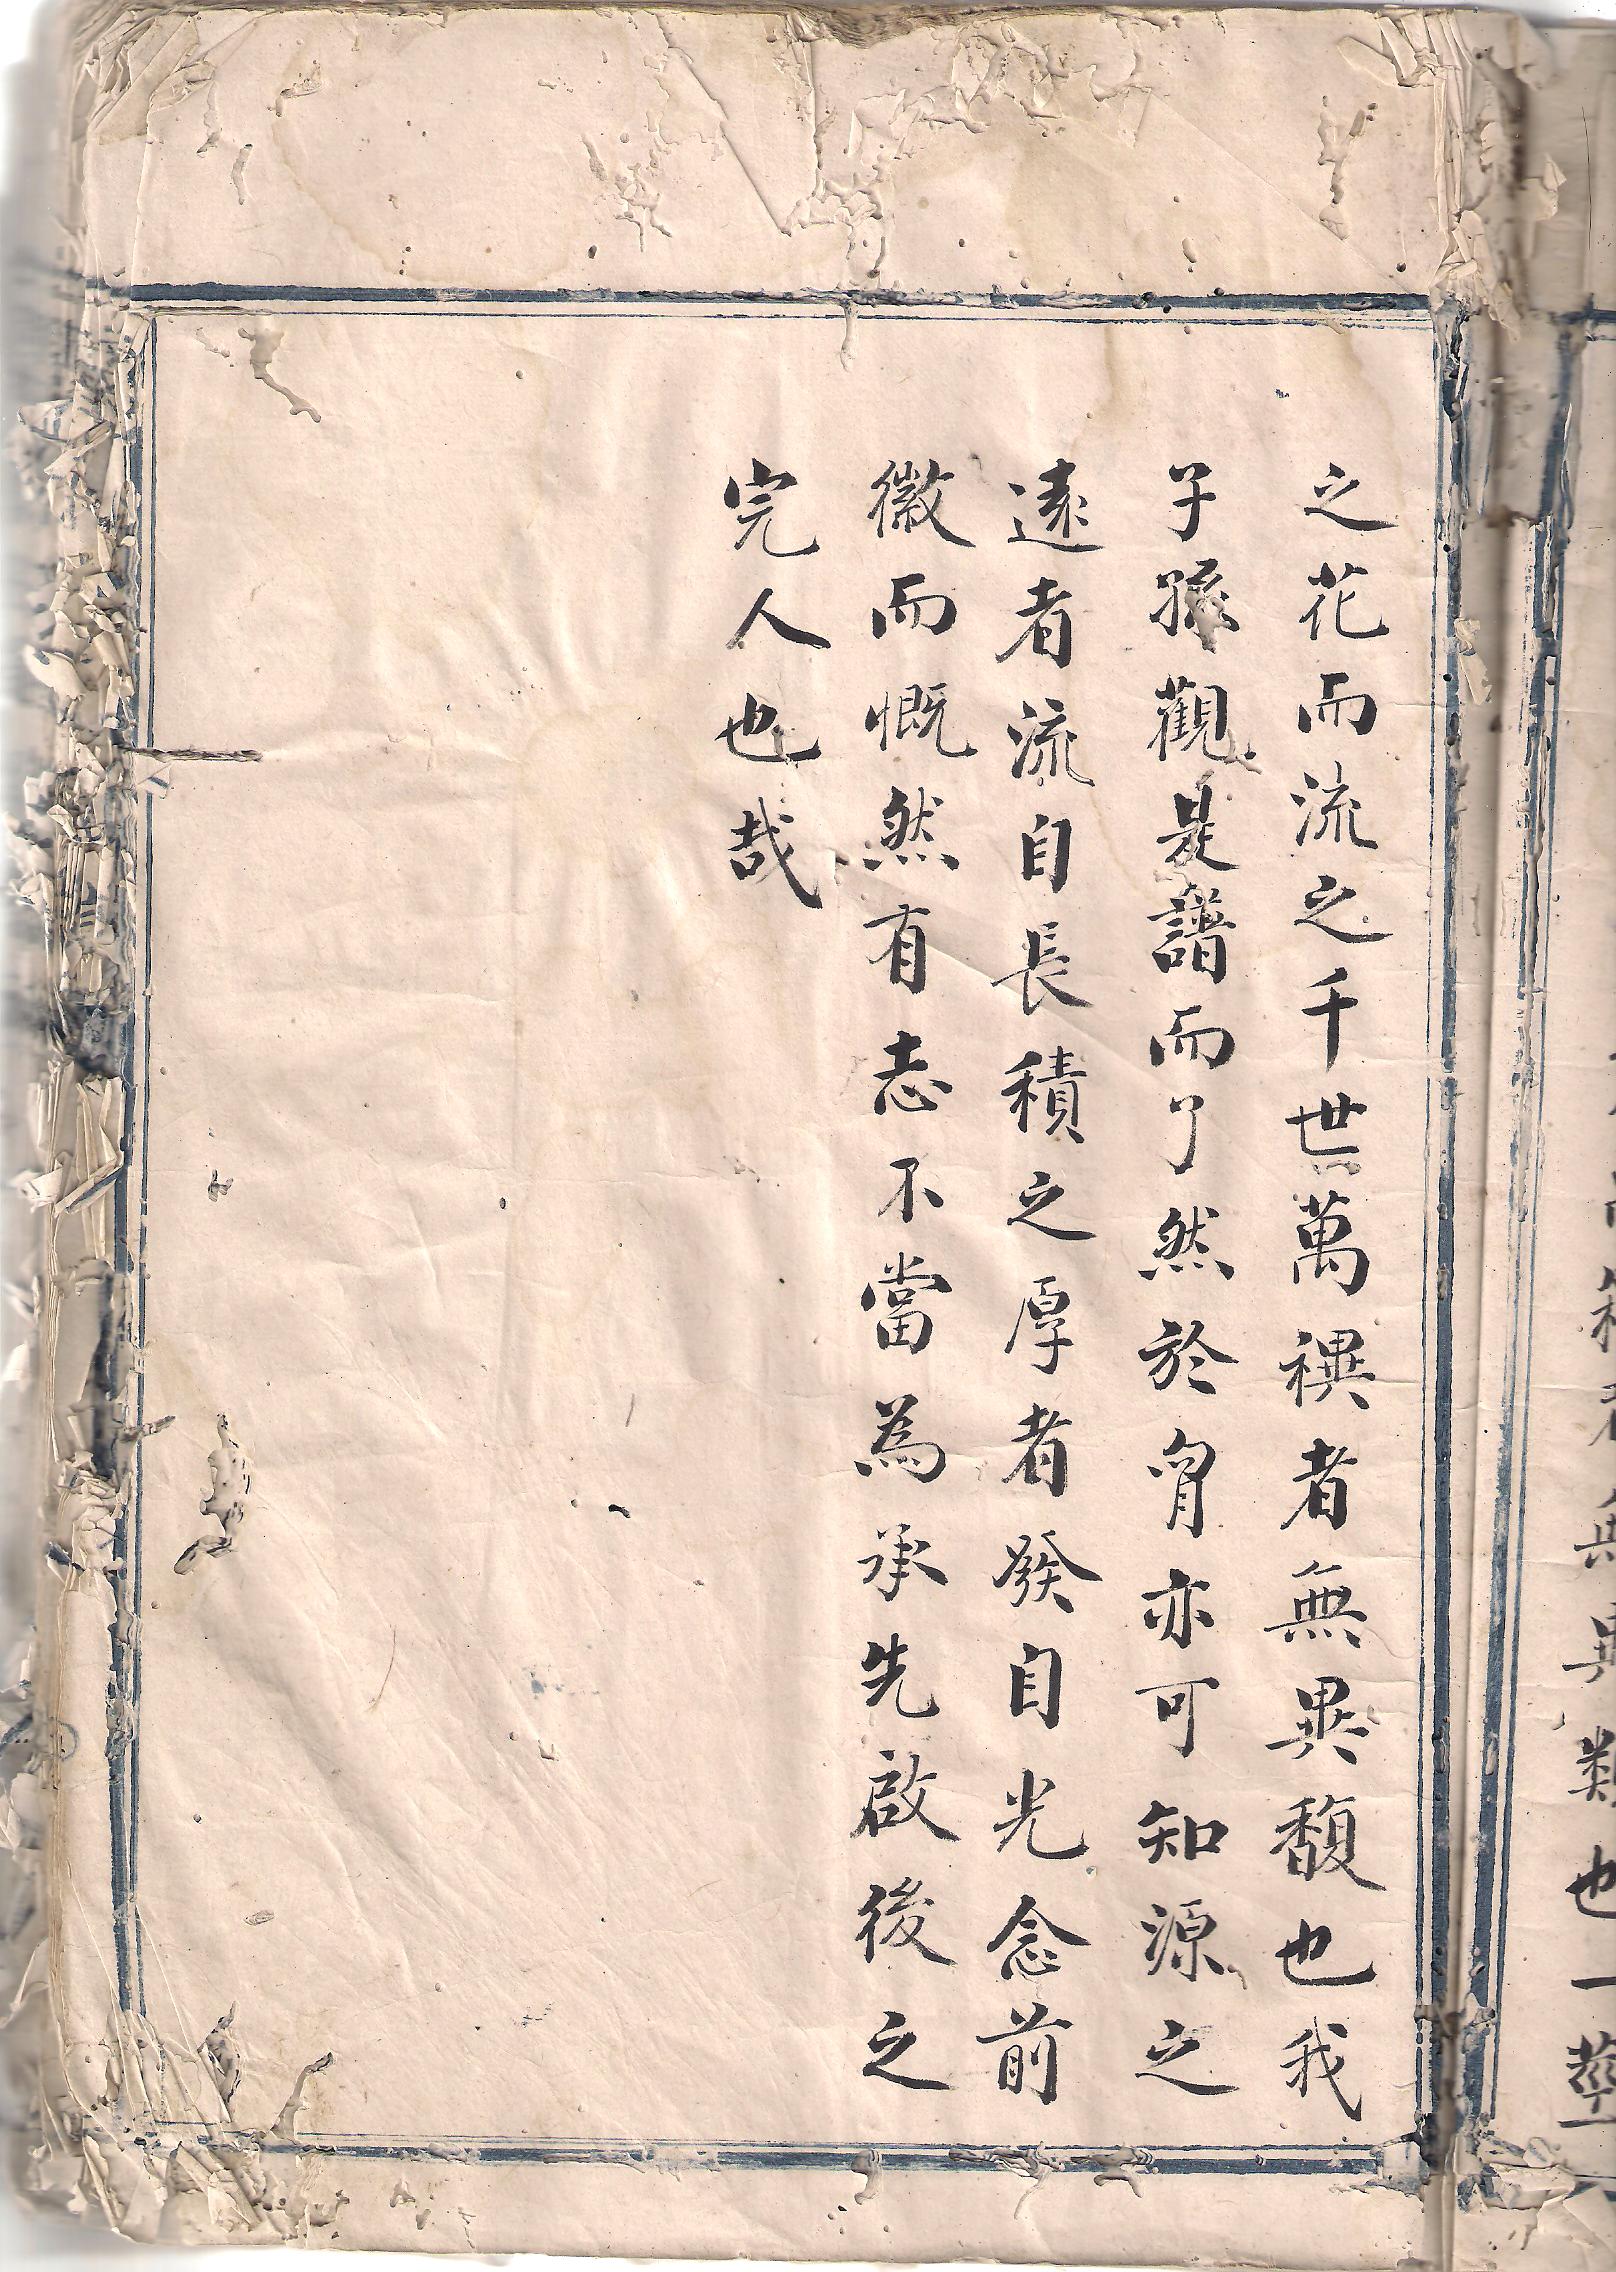 之花而流之千世萬禩者無異馥也我
子孫觀是譜而了然於胷亦可知源之
遠者流自長積之厚者發自光念前
徽而慨然有志不當為承先啟後之
完人也哉